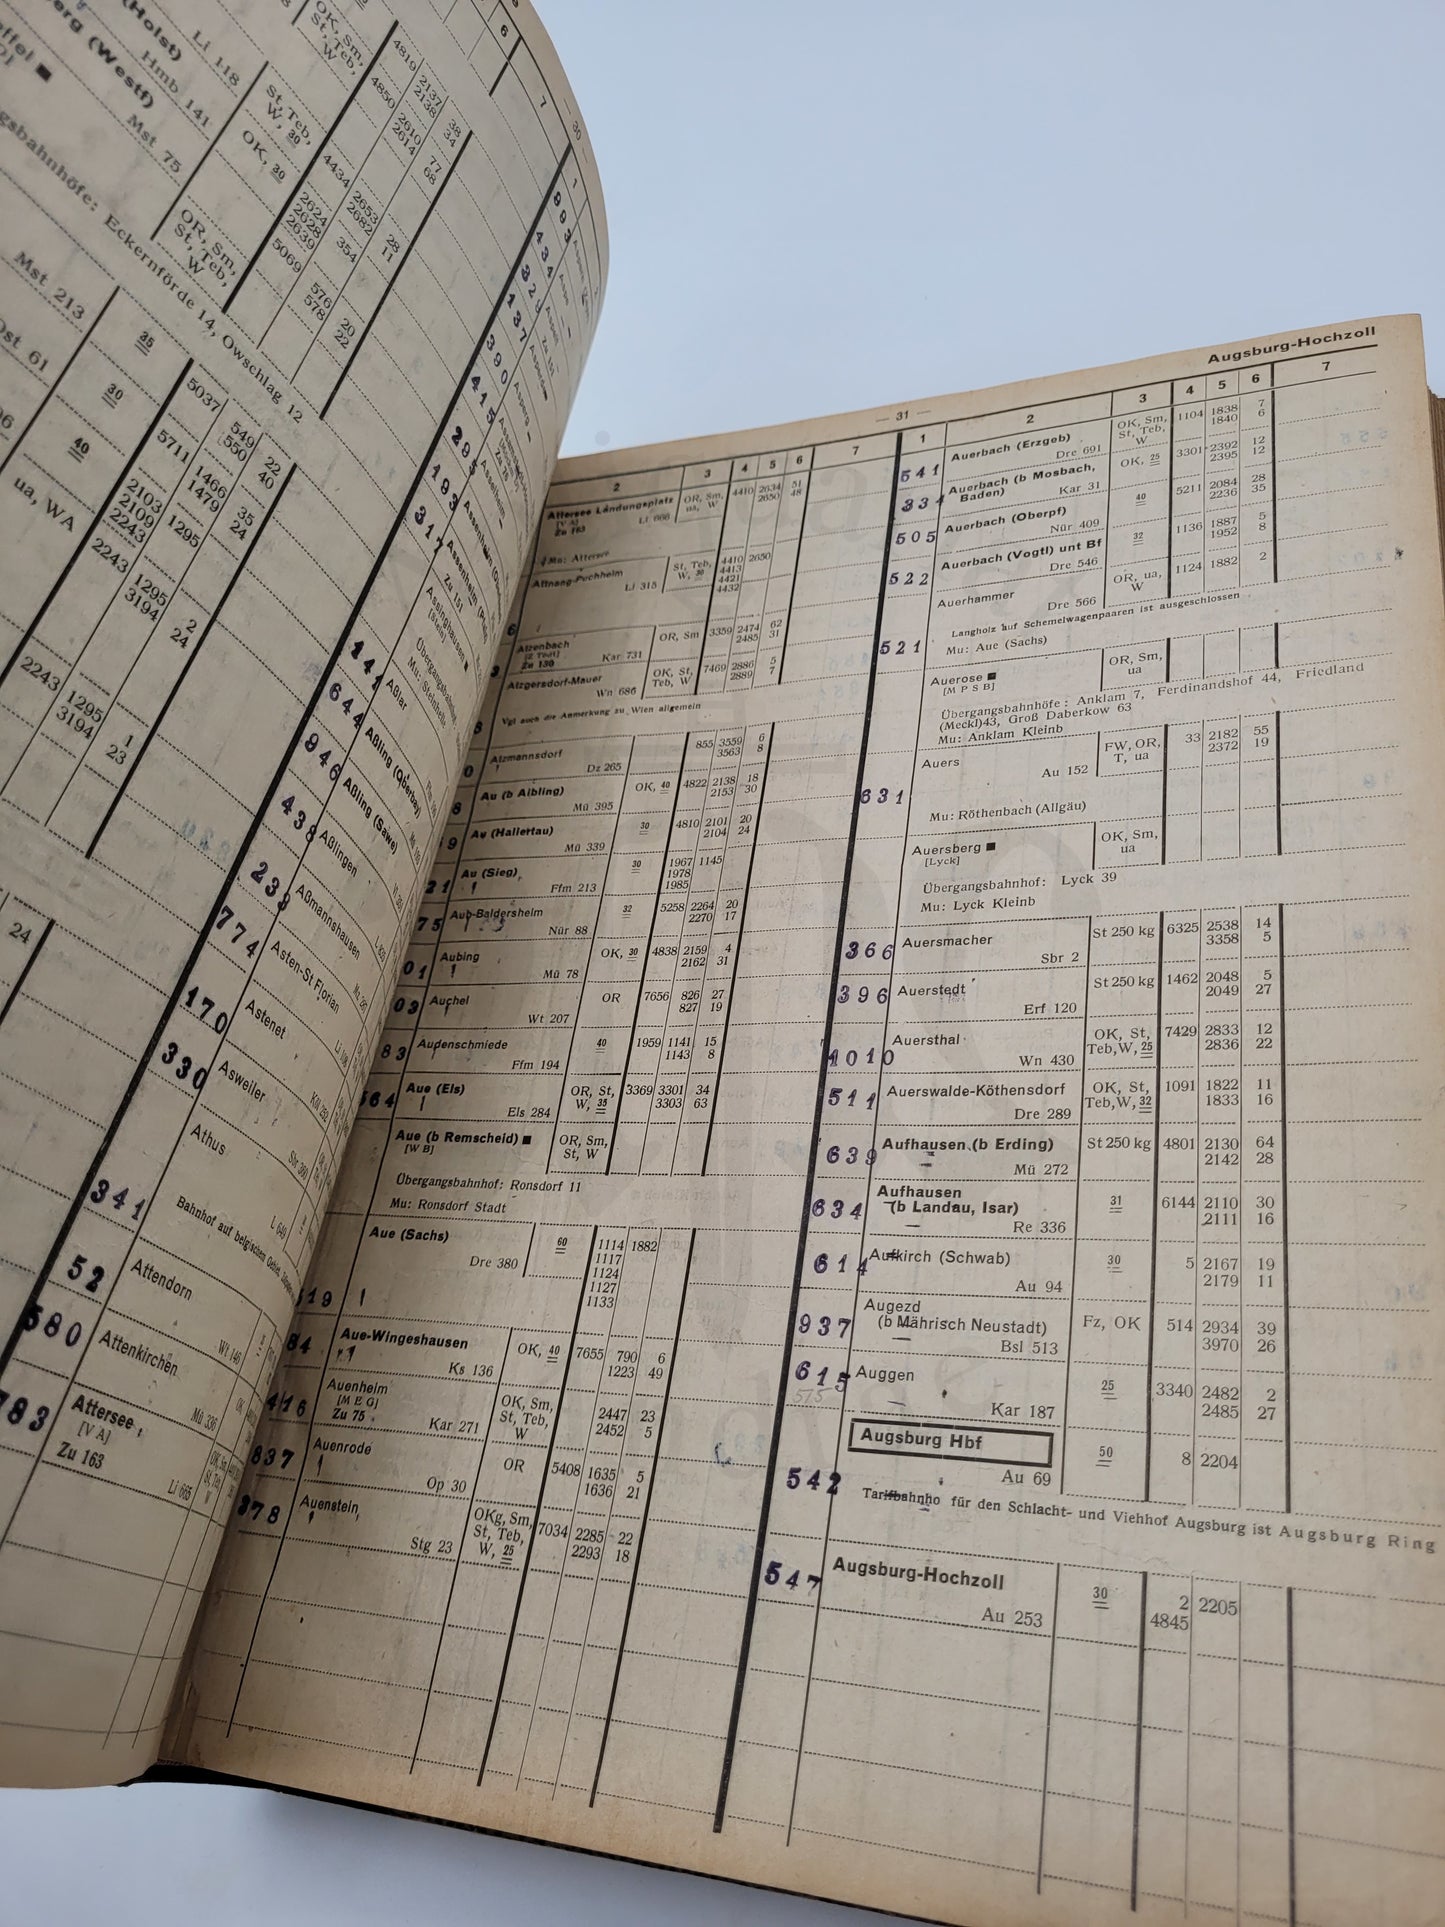 — 30 —
(Holst)
Li 118
Hmb 141
erg (Westf)
Mst 75
OK, Sm,
St, Teb,
W
St, Teb,
W, 30
OK, 30
OR, Sm,
St, Teb,
W,
4819 2137 38
2138 34
4850 2610 77
2614 68
4434 2653 28
2682 11
2624 354
2628
2639
5069 576 20
578 22
Eckernförde 14, Owschlag 12
Mst 213
35
5037 549 22
550 40
30
5711 1466 35
1479 24
40
2103 1295
2109
2243
ua, WA
2243 1295 2
3194 24
2243 1295 1
3194 23
24
6
7
1
993
434
329
137
390
415
295
193
317
141 Aßlar
644 Aßling (Oberbay)
946 Aßling (Sawe)
438 Aßlingen
239 Aßmannshausen
774 Asten-St Florian
170 Astenet
330 Asweiler
Athus
341 Attendorn
52 Attenkirchen
580 Attersee
[V A]
Zu 163
Li 665
783
Mü 336
Wt 146
— 31 —
Augsburg-Hochzoll
2 3 4 5 6 7
Attersee Landungsplatz
[V A]
Zu 163
Li 666
OR, Sm,
ua, W
4410 2634 51
2650 48
Mu: Attersee
Attnang-Puchheim
Li 315
St, Teb,
W, 30
4410 2650
4413
4421
4432
Atzenbach
[Z Todt]
Zu 130
Kar 731
OR, Sm
3359 2474 62
2485 31
Atzgersdorf-Mauer
Wn 686
OK, St,
Teb, W
7469 2886 5
2889 7
Vgl auch die Anmerkung zu Wien allgemein
Atzmannsdorf
Dz 265
855 3559 6
3563 8
Au (b Aibling)
Mü 395
OK, 40
4822 2138 18
2153 30
Au (Hallertau)
Mü 339
30
4810 2101 20
2104 24
21 Au (Sieg)
Ffm 213
30
1967 1145
1978
1985
75 Aub-Baldersheim
Nür 88
32
5258 2264 20
2270 17
01 Aubing
Mü 78
OK, 30
4838 2159 4
2162 31
03 Auchel
Wt 207
OR
7656 826 27
827 19
83 Audenschmiede
Ffm 194
40
1959 1141 15
1143 8
564 Aue (Els)
Els 284
OR, St,
W, 35
3369 3301 34
3303 63
Aue (b Remscheid) ■
[W B]
OR, Sm,
St, W
Übergangsbahnhof: Ronsdorf 11
Mu: Ronsdorf Stadt
Aue (Sachs)
Dre 380
60
1114 1882
1117
1124
1127
1133
519
84 Aue-Wingeshausen
Ks 136
OK, 40
7655 790 6
1223 49
416 Auenheim
[M E G]
Zu 75
Kar 271
OK, Sm,
St, Teb,
W
2447 23
2452 5
837 Auenrode
Op 30
OR
5408 1635 5
1636 21
378 Auenstein
Stg 23
OKg, Sm,
St, Teb,
W, 25
7034 2285 22
2293 18
1 2 3 4 5 6 7
541 Auerbach (Erzgeb)
Dre 691
OK, Sm,
St, Teb,
W
1104 1838 7
1840 6
334 Auerbach (b Mosbach,
Baden)
Kar 31
OK, 25
3301 2392 12
2395 12
505 Auerbach (Oberpf)
Nür 409
40
5211 2084 28
2236 35
522 Auerbach (Vogtl) unt Bf
Dre 546
32
1136 1887 5
1952 8
Auerhammer
Dre 566
OR, ua,
W
1124 1882 2
521
Langholz auf Schemelwagenpaaren ist ausgeschlossen
Mu: Aue (Sachs)
Auerose ■
[M P S B]
OR, Sm,
ua
Übergangsbahnhöfe: Anklam 7, Ferdinandshof 44, Friedland
(Meckl)43, Groß Daberkow 63
Mu: Anklam Kleinb
Auers
Au 152
FW, OR,
T, ua
33 2182 55
2372 19
631
Mu: Röthenbach (Allgäu)
Auersberg ■
[Lyck]
OK, Sm,
ua
Übergangsbahnhof: Lyck 39
Mu: Lyck Kleinb
366 Auersmacher
Sbr 2
St 250 kg
6325 2538 14
3358 5
396 Auerstedt
Erf 120
St 250 kg
1462 2048 5
2049 27
1010 Auersthal
Wn 430
OK, St,
Teb,W, 25
7429 2833 12
2836 22
511 Auerswalde-Köthensdorf
Dre 289
OK, St,
Teb,W, 32
1091 1822 11
1833 16
639 Aufhausen (b Erding)
Mü 272
St 250 kg
4801 2130 64
2142 28
634 Aufhausen
(b Landau, Isar)
Re 336
31
6144 2110 30
2111 16
614 Aufkirch (Schwab)
Au 94
30
5 2167 19
2179 11
937 Augezd
(b Mährisch Neustadt)
Bsl 513
Fz, OK
514 2934 39
3970 26
615 Auggen
575
Kar 187
25
3340 2482 2
2485 27
Augsburg Hbf
Au 69
50
8 2204
542
Tarifbahnho für den Schlacht- und Viehhof Augsburg ist Augsburg Ring
547 Augsburg-Hochzoll
Au 253
30
2 2205
4845